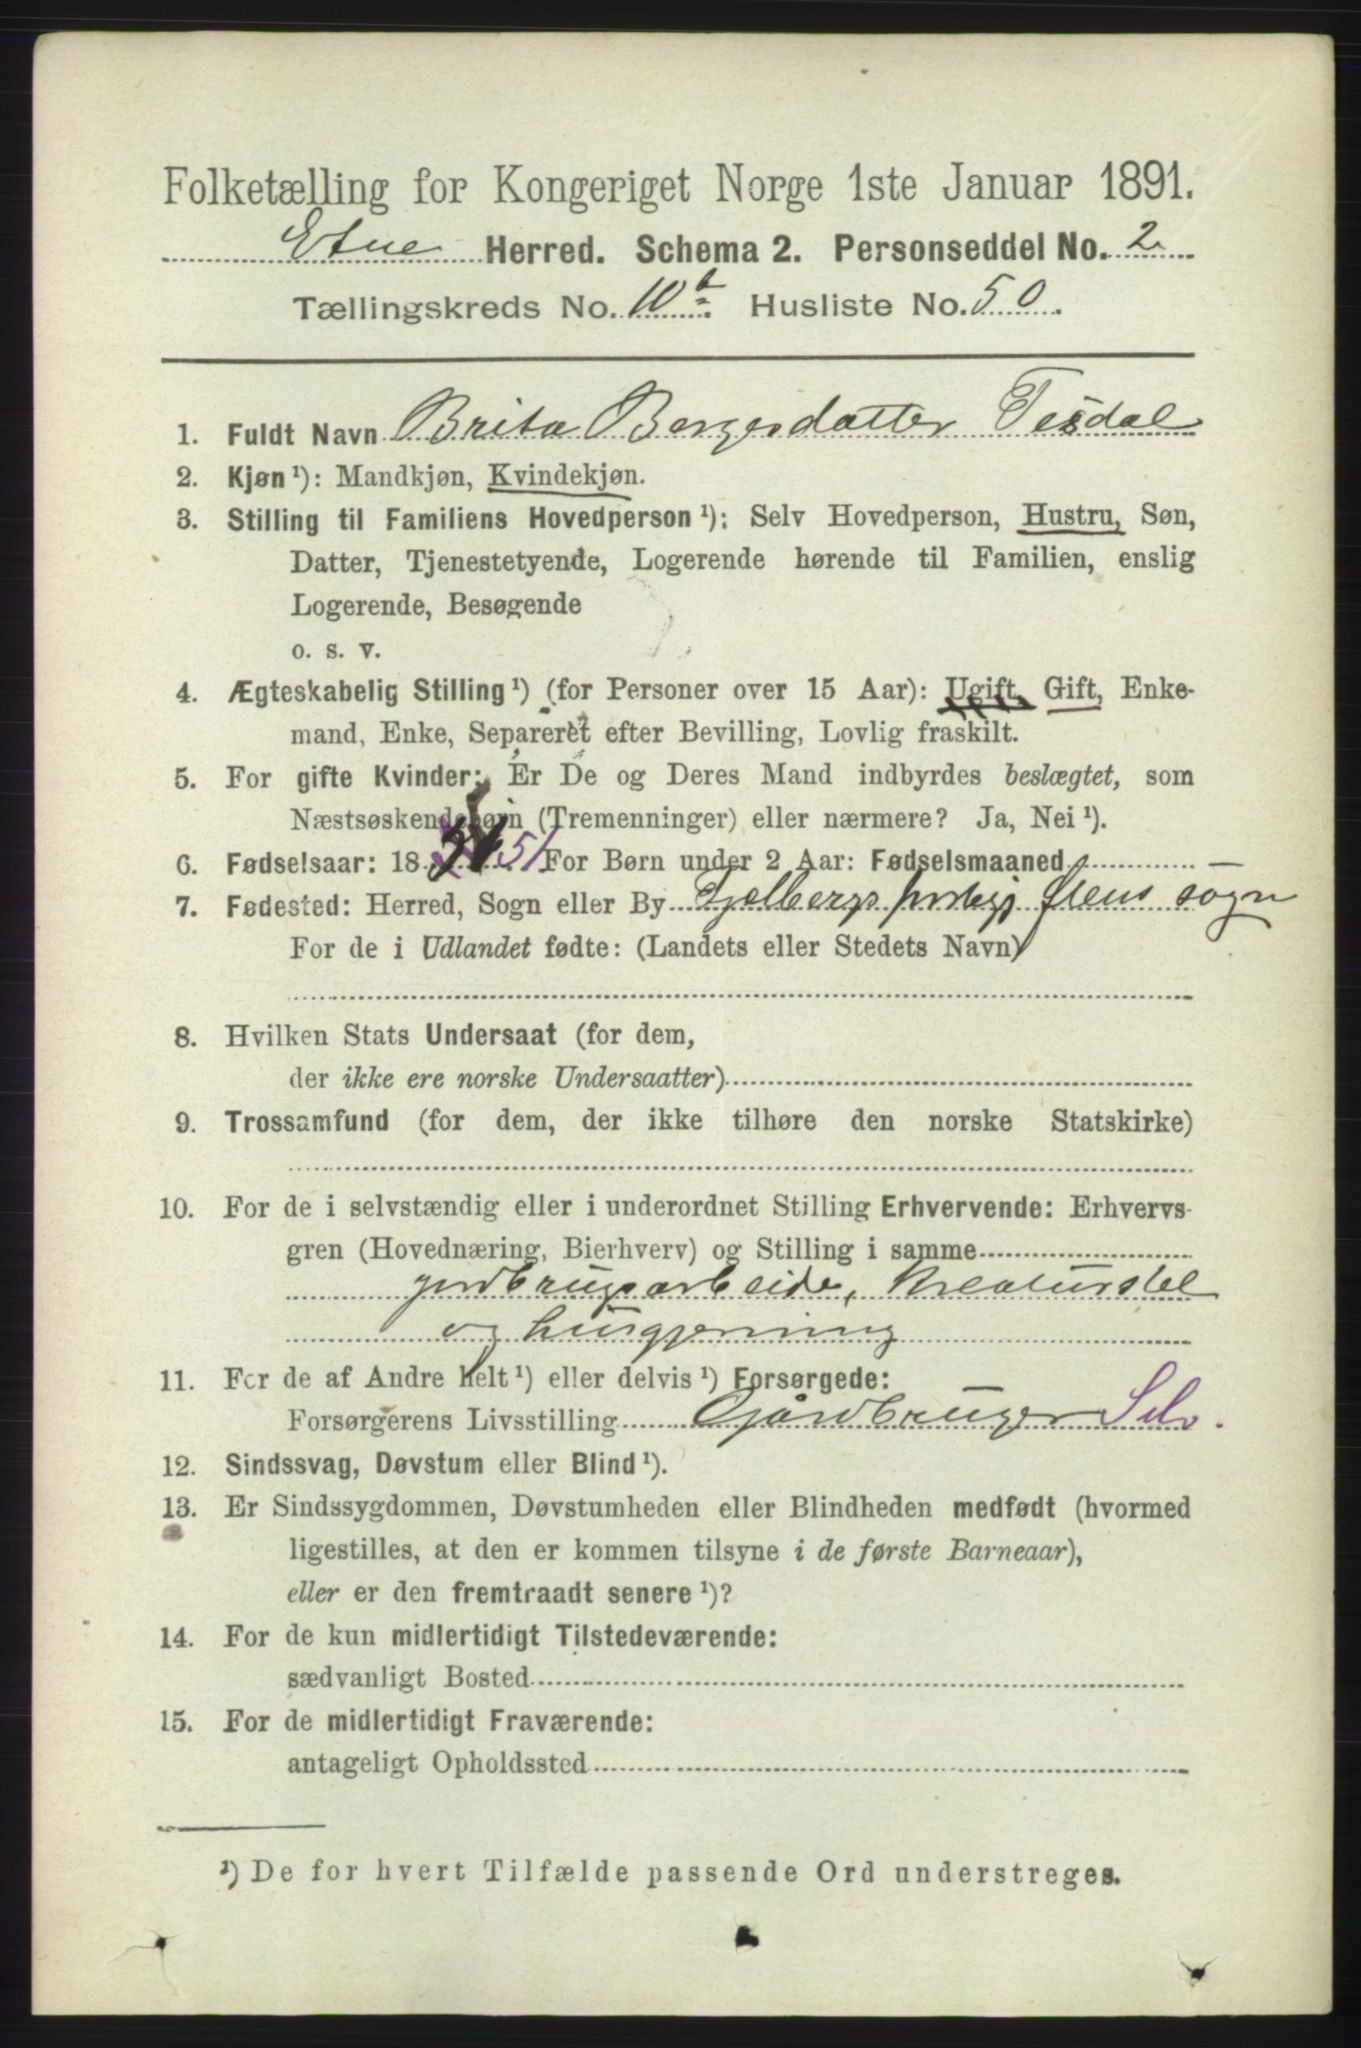 Folketælling for Kongeriget Norge 1ste Januar 1891.
Etne Herred. Schema 2. Personseddel No. 2
Tællingskreds No. 10 b. Husliste No. 50.
1. Fuldt Navn Brita Bergesdatter Tesdal
2. Kjøn ¹): Mandkjøn, Kvindekjøn.
3. Stilling til Familiens Hovedperson ¹): Selv Hovedperson, Hustru, Søn,
Datter, Tjenestetyende, Logerende hørende til Familien, enslig
Logerende, Besøgende
o. s. v.
4. Ægteskabelig Stilling ¹) (for Personer over 15 Aar): Ugift, Gift, Enke-
mand, Enke, Separeret efter Bevilling, Lovlig fraskilt.
5. For gifte Kvinder: Er De og Deres Mand indbyrdes beslægtet, som
Næstsøskendebørn (Tremenninger) eller nærmere? Ja, Nei ¹).
6. Fødselsaar: 18 51 For Børn under 2 Aar: Fødselsmaaned
7. Fødested: Herred, Sogn eller By Fjelbergs sogn
For de i Udlandet fødte: (Landets eller Stedets Navn)
8. Hvilken Stats Undersaat (for dem,
der ikke ere norske Undersaatter)
9. Trossamfund (for dem, der ikke tilhøre den norske Statskirke)
10. For de i selvstændig eller i underordnet Stilling Erhvervende: Erhvervs-
gren (Hovednæring, Bierhverv) og Stilling i samme
jordbrugsarbeide, kreaturstel
og husgjerning
11. For de af Andre helt ¹) eller delvis ¹) Forsørgede:
Forsørgerens Livsstilling Gårdbruger Selv.
12. Sindssvag, Døvstum eller Blind ¹).
13. Er Sindssygdommen, Døvstumheden eller Blindheden medfødt (hvormed
ligestilles, at den er kommen tilsyne i de første Barneaar),
eller er den fremtraadt senere ¹)?
14. For de kun midlertidigt Tilstedeværende:
sædvanligt Bosted
15. For de midlertidigt Fraværende:
antageligt Opholdssted
¹) De for hvert Tilfælde passende Ord understreges.